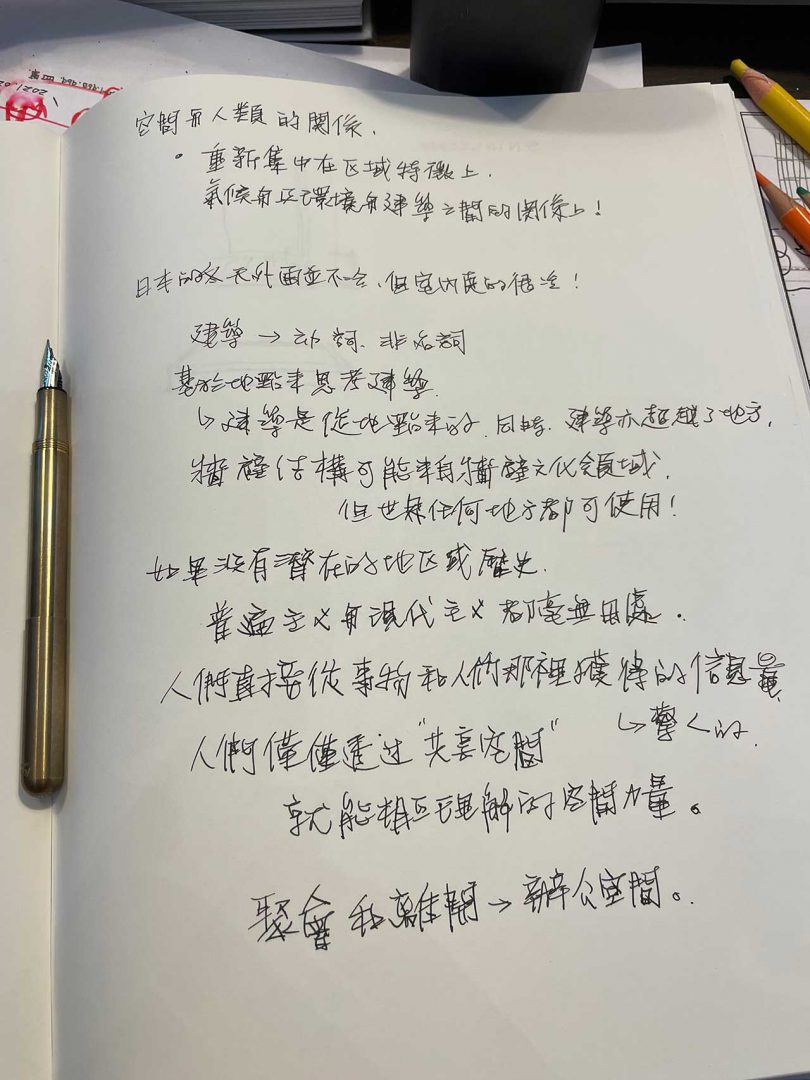 空間與人類的關係.
• 重新集中在区域特徵上.
氣候與环環境與建築之間的関係上!
日本的冬天外面並不冷、但室內真的很冷!
建築 → 动詞. 非名詞
基於地點來思考建築.
↳ 建築是從地點來的. 同時. 建築亦超越了地方.
牆壁结構可能來自牆壁文化領域.
但世界任何地方都可使用!
如果没有潛在的地区或歷史.
普遍主义與現代主义都毫無用處.
人們直接從事物和人們那裡獲得的信息量
↳ 驚人的.
人們僅僅透过 "共享空間"
就能相互理解的空間力量。
聚會和離開 → 辦公空間。